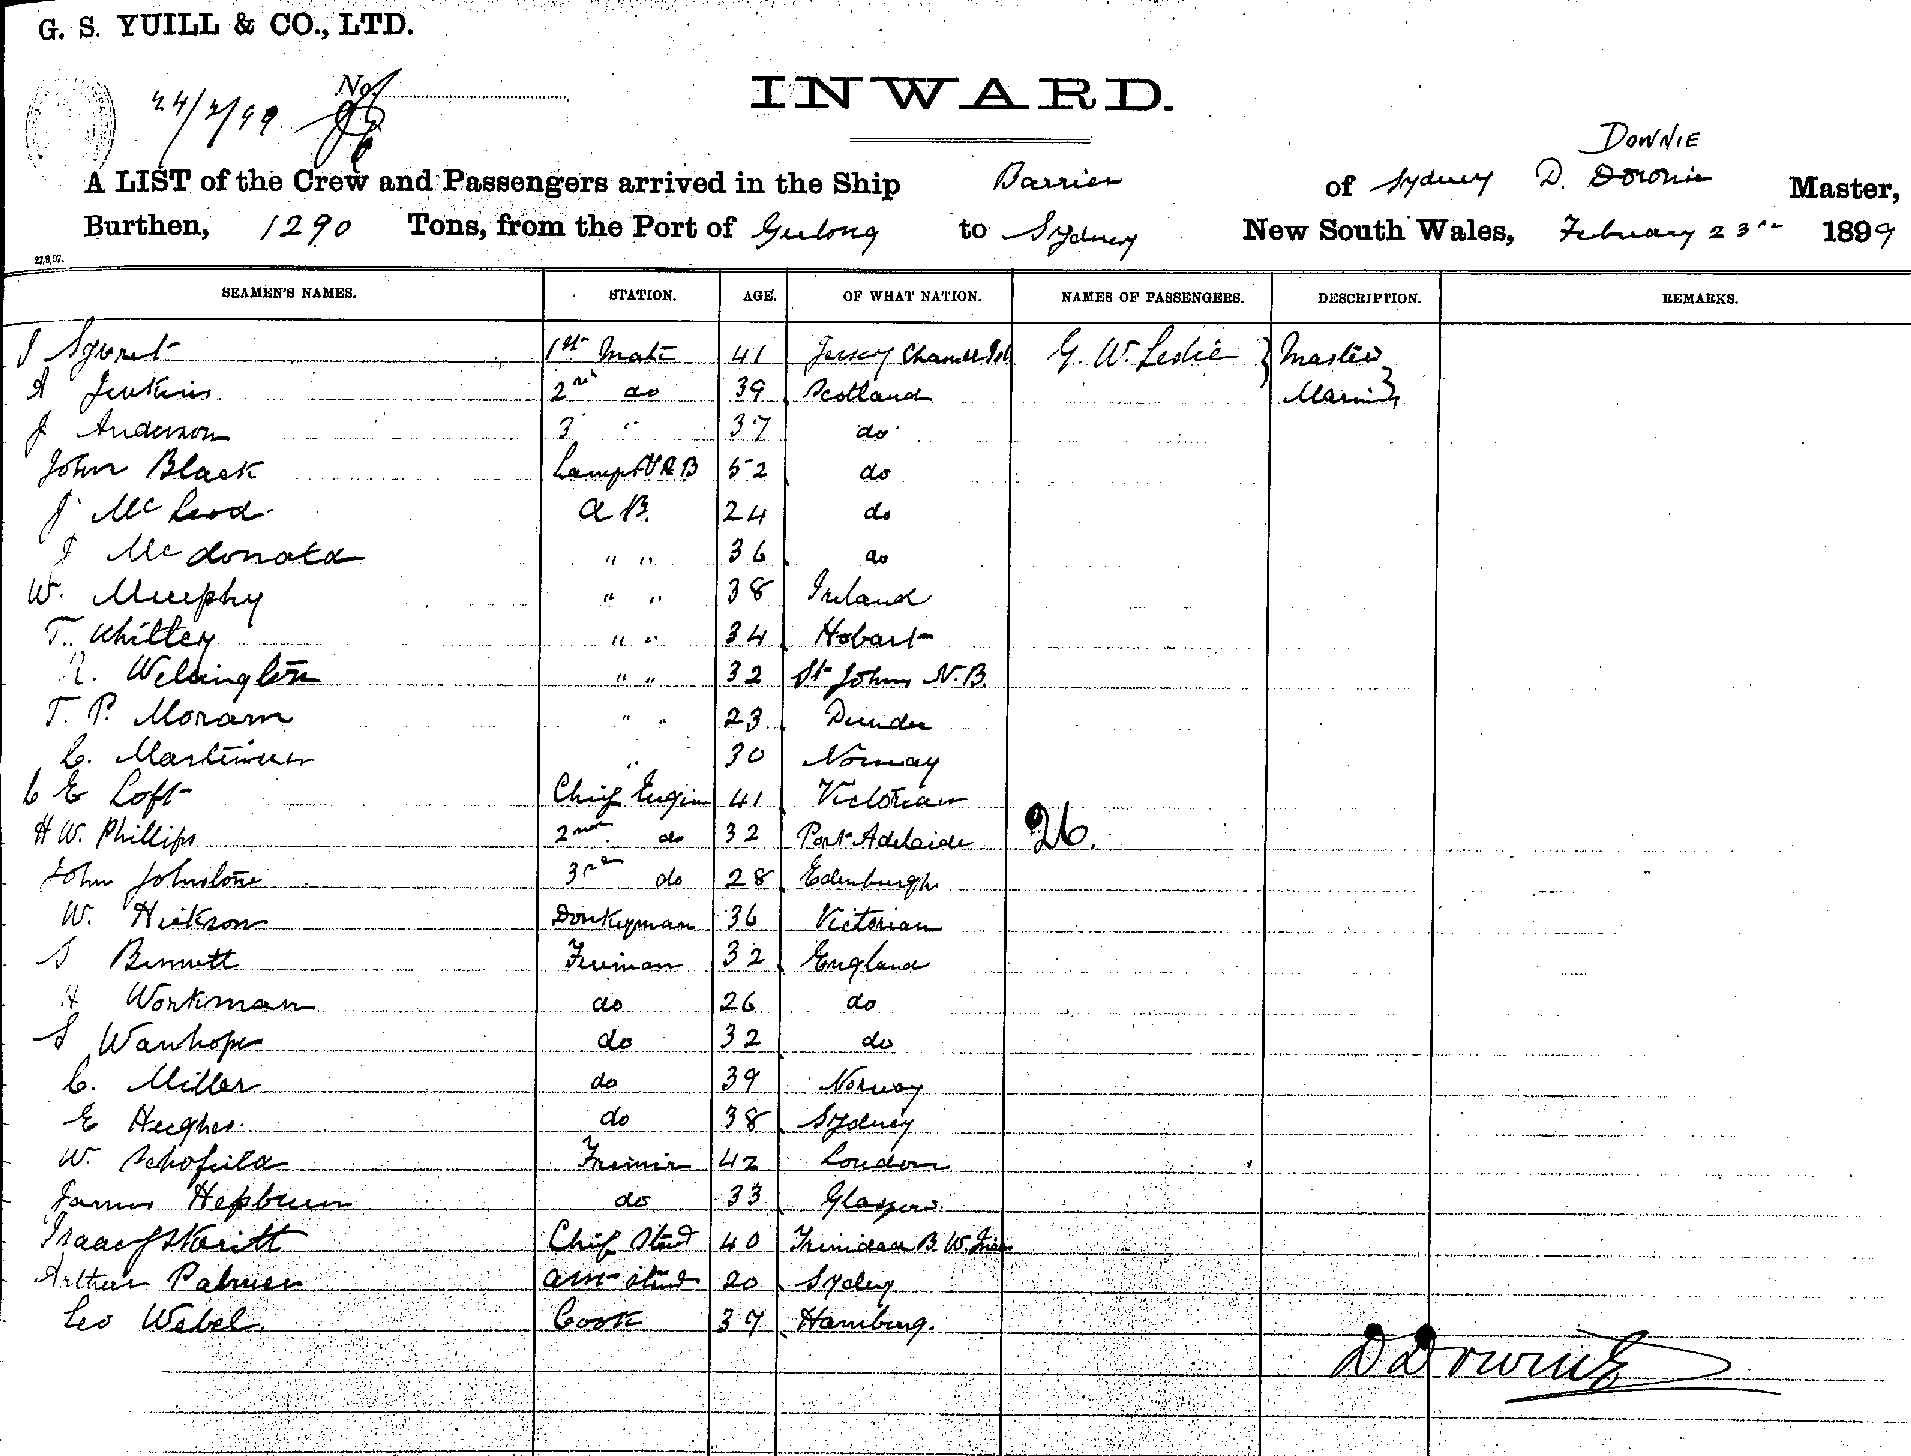 G. S. YUILL & CO., LTD.
24/2/99 No.
INWARD.
DOWNIE
A LIST of the Crew and Passengers arrived in the Ship Barrier of Sydney D. Downie Master,
Burthen, 1290 Tons, from the Port of Geelong to Sydney New South Wales, February 23rd 1899
27,9,97.
SEAMEN'S NAMES. STATION. AGE. OF WHAT NATION. NAMES OF PASSENGERS. DESCRIPTION. REMARKS.
1st Mate 41 Jersey Channel Isl G. W. Leslie } Master
A Jenkins 2nd do 39 Scotland Mariner
J Anderson 3 " 37 do
John Black Lamps A B 52 do
J McLeod A B. 24 do
J McDonald " " 36 do
W. Murphy " " 38 Ireland
T. Whitley " " 34 Hobart
Welsington " " 32 St Johns N.B.
T. P. Moram " " 23 Dundee
C. Martinsen " 30 Norway
C E Loft Chief Engin 41 Victorian
H W. Phillips 2nd do 32 Port Adelaide 26.
John Johnstone 3rd do 28 Edenburgh
W. Hickson Donkeyman 36 Victorian
S Bennett Fireman 32 England
H Workman do 26 do
S Wanhope do 32 do
C. Miller do 39 Norway
E Hughes. do 38 Sydney
W. Schofield Trimmer 42 London
James Hepburn do 33 Glasgow
Isaac J Skeritt Chief Stewd 40 Trinidad B. W. Indies
Arthur Palmer asst stewd 20 Sydney
Leo Wabel. Cook 37 Hamburg.
D Downie